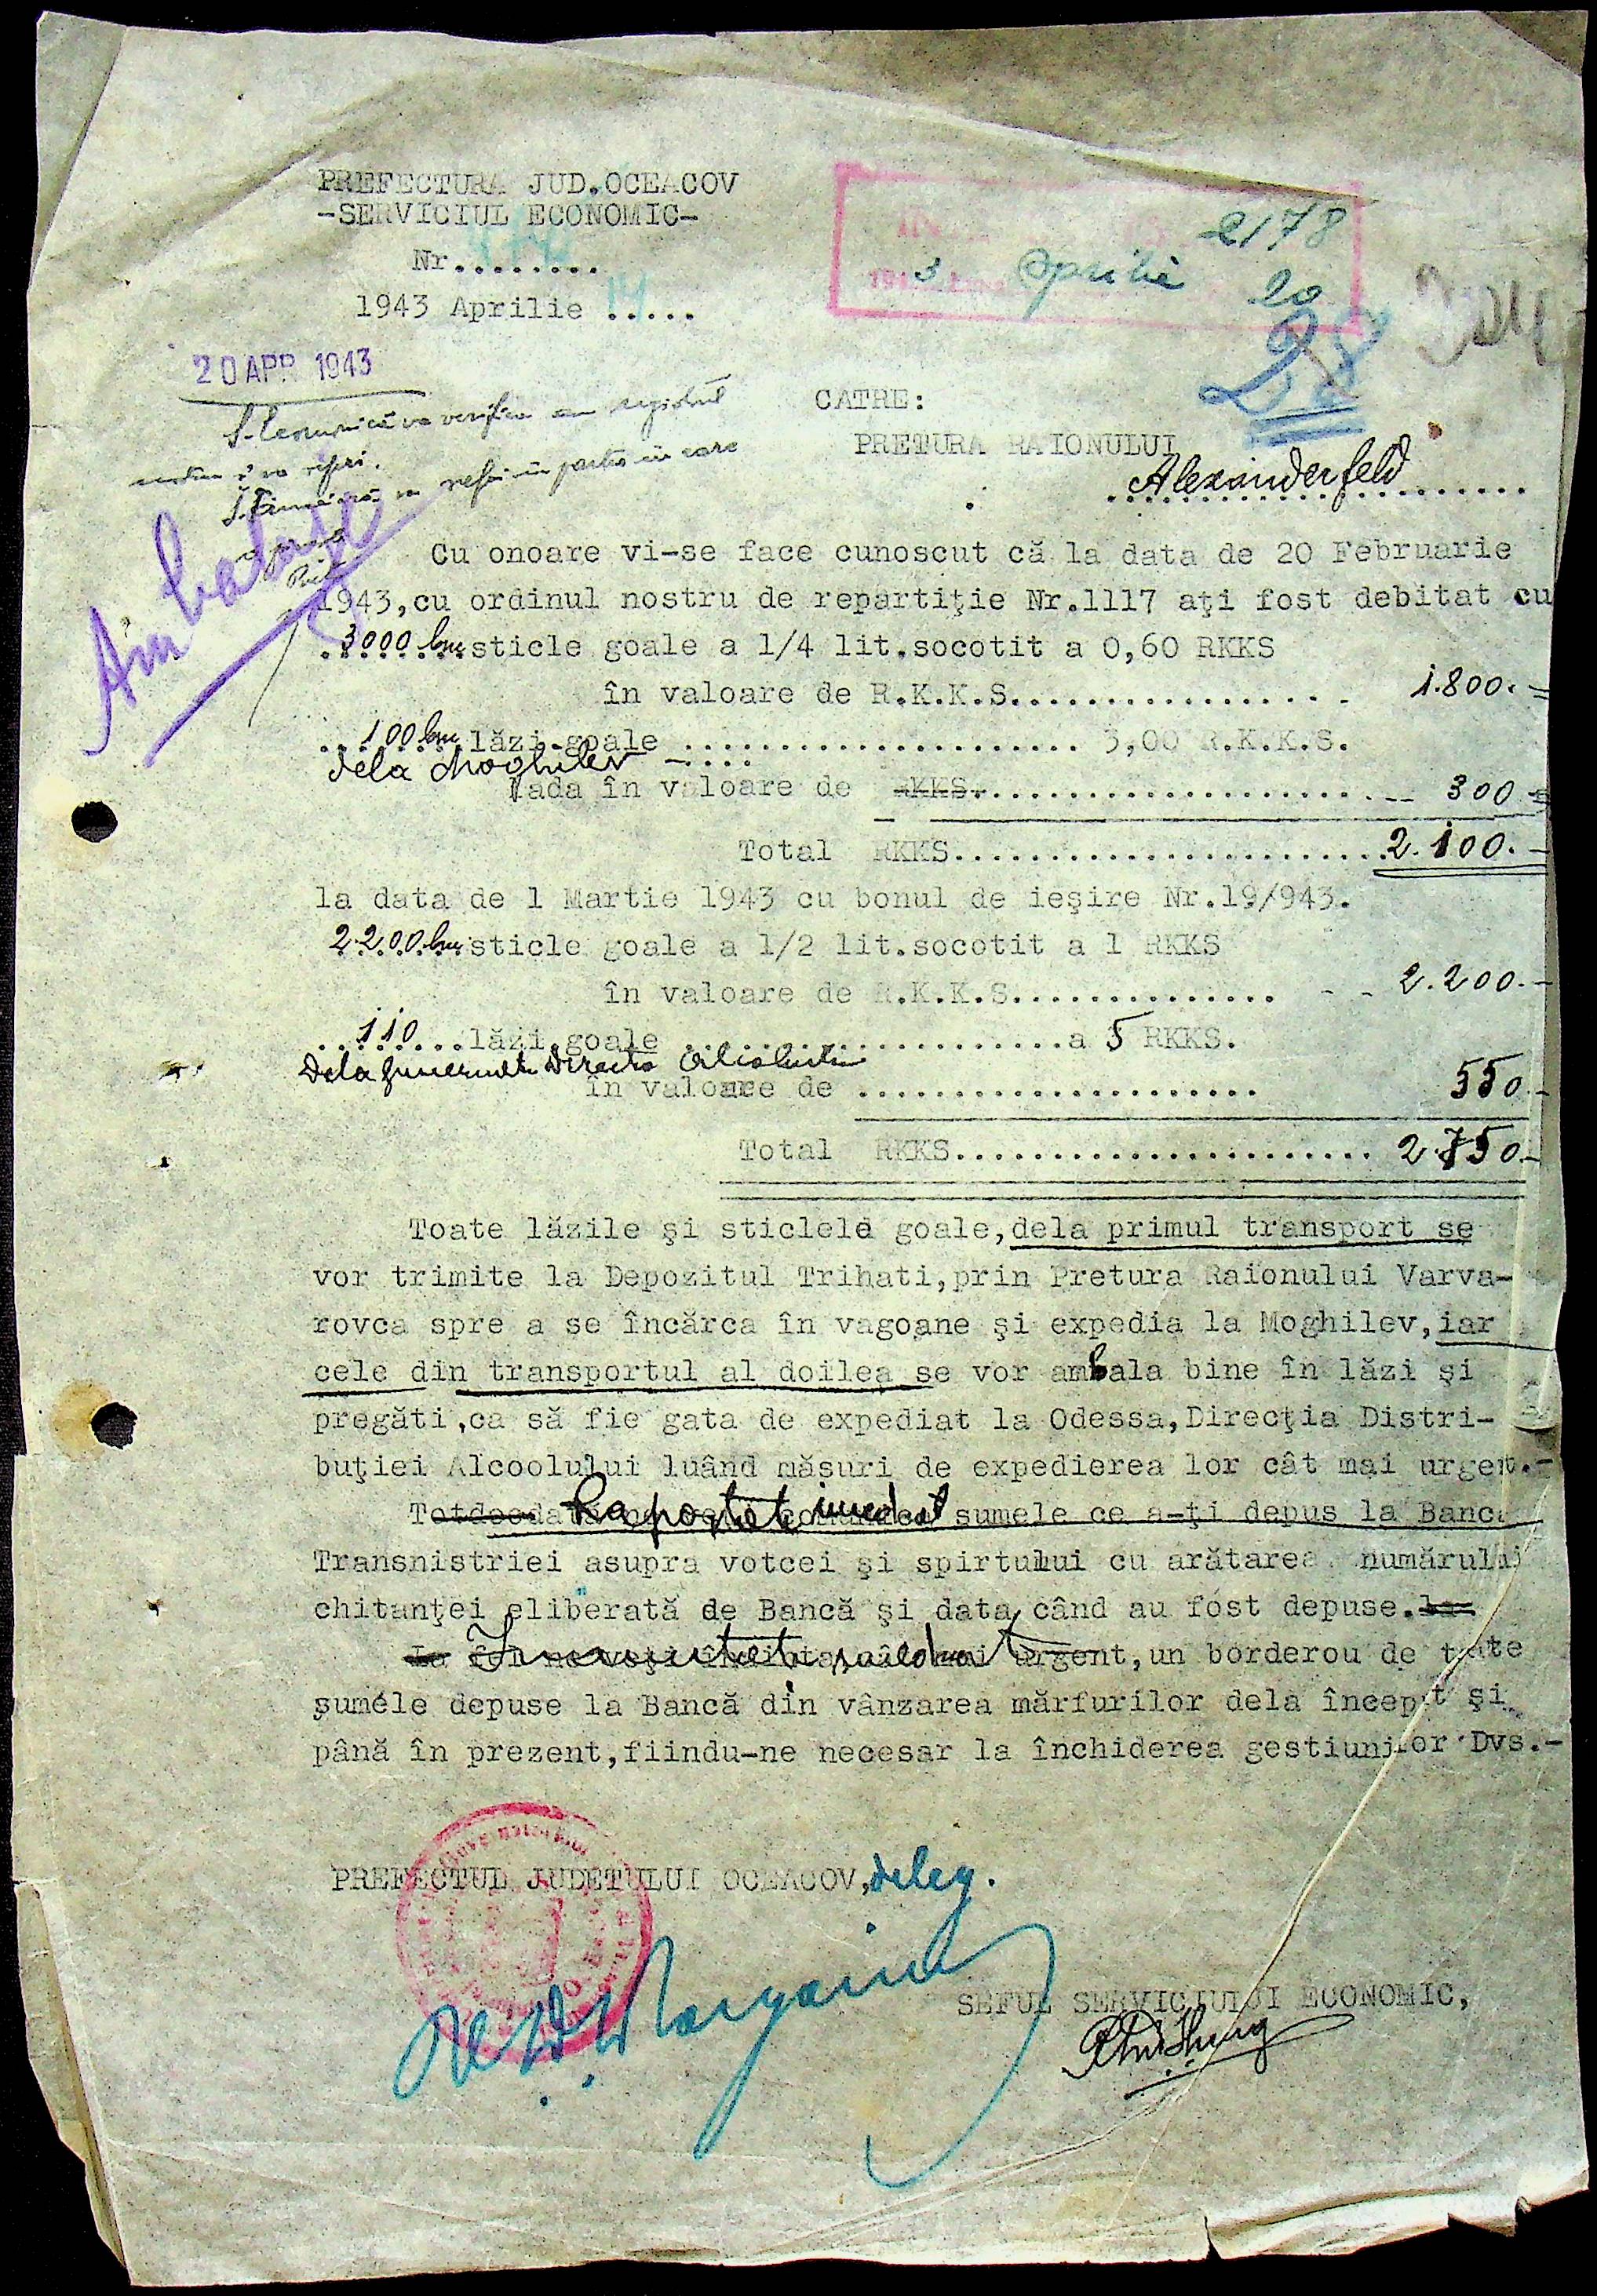 PREFECTURA JUD.OCEACOV
-SERVICIUL ECONOMIC-
Nr........
1943 Aprilie 14.....
2178
1943 Aprilie 20
28
20 APR 1943
CATRE:
PRETURA RAIONULUI
Alexanderfeld
Cu onoare vi-se face cunoscut că la data de 20 Februarie
1943,cu ordinul nostru de repartiţie Nr.1117 aţi fost debitat cu
3000 buc sticle goale a 1/4 lit.socotit a 0,60 RKKS
în valoare de R.K.K.S.................. 1.800.-
100 buc lăzi goale ...................... 3,00 R.K.K.S.
dela Moghilev
lada în valoare de RKKS...................... 300 -
Total RKKS.........................2.100.-
la data de 1 Martie 1943 cu bonul de ieşire Nr.19/943.
2.200 buc sticle goale a 1/2 lit.socotit a 1 RKKS
în valoare de R.K.K.S............... 2.200.-
110...lăzi goale .....................a 5 RKKS.
Dela
în valoare de ...................... 550.-
Total RKKS........................ 2.750.-
Toate lăzile şi sticlele goale,dela primul transport se
vor trimite la Depozitul Trihati,prin Pretura Raionului Varva-
rovca spre a se încărca în vagoane şi expedia la Moghilev,iar
cele din transportul al doilea se vor ambala bine în lăzi şi
pregăti,ca să fie gata de expediat la Odessa,Direcţia Distri-
buţiei Alcoolului luând măsuri de expedierea lor cât mai urgent.-
Totdeodată Raportati imediat sumele ce a-ţi depus la Banca
Transnistriei asupra votcei şi spirtului cu arătarea numărului
chitanţei eliberată de Bancă şi data când au fost depuse.
urgent,un borderou de toate
sumele depuse la Bancă din vânzarea mărfurilor dela început şi
până în prezent,fiindu-ne necesar la închiderea gestiunilor Dvs.-
PREFECTUL JUDETULUI OCEACOV,deleg.
SEFUL SERVICIULUI ECONOMIC,